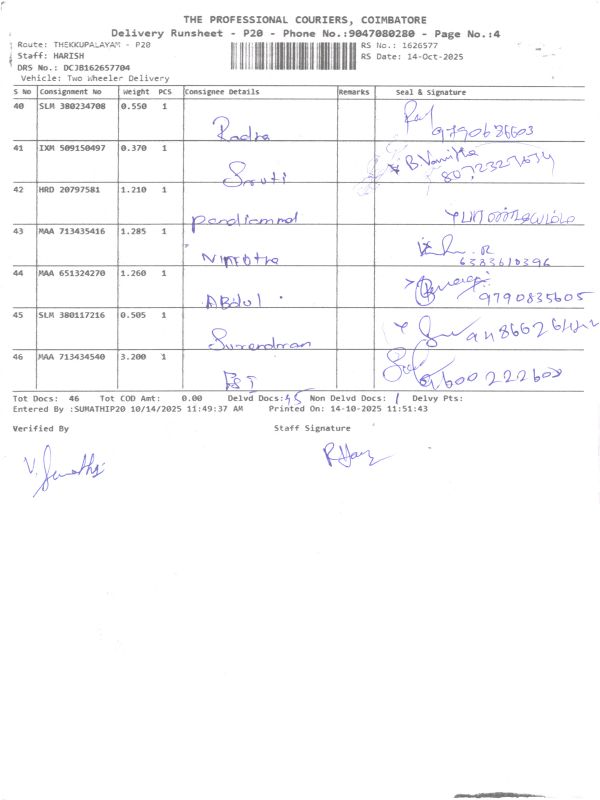 THE PROFESSIONAL COURIERS, COIMBATORE
Delivery Runsheet - P20 - Phone No.:9047080280 - Page No.:4
Route: THEKKUPALAYAM - P20 RS No.: 1626577
Staff: HARISH RS Date: 14-Oct-2025
DRS No.: DCJB162657704
Vehicle: Two Wheeler Delivery
S NO Consignment No Weight PCS Consignee Details Remarks Seal & Signature
40 SLM 380234708 0.550 1
Radha 9790686603
41 IXM 509150497 0.370 1 B.Vanitha
Sruti 8072327674
42 HRD 20797581 1.210 1
Pandiammal
43 MAA 713435416 1.285 1
6383610396
44 MAA 651324270 1.260 1
ABdul 9790835605
45 SLM 380117216 0.505 1
Surendran
46 MAA 713434540 3.200 1
9600222602
Tot Docs: 46 Tot COD Amt: 0.00 Delvd Docs: 45 Non Delvd Docs: 1 Delvy Pts:
Entered By :SUMATHIP20 10/14/2025 11:49:37 AM Printed On: 14-10-2025 11:51:43
Verified By Staff Signature
V. Sumathi